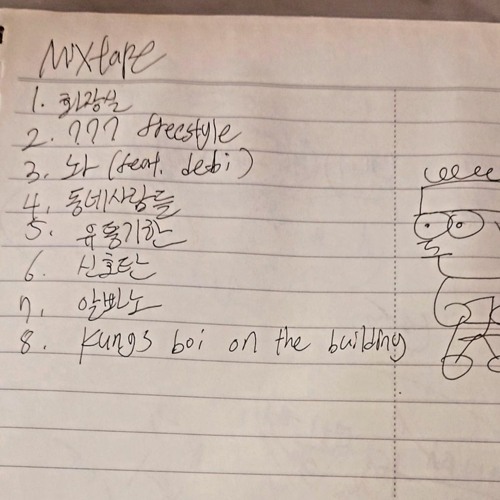 Mixtape
1. 화장실
2. 777 freestyle
3. 놔 (feat. desbi)
4. 동네사람들
5. 유통기한
6. 신호탄
7. 알빠노
8. Kungs boi on the building